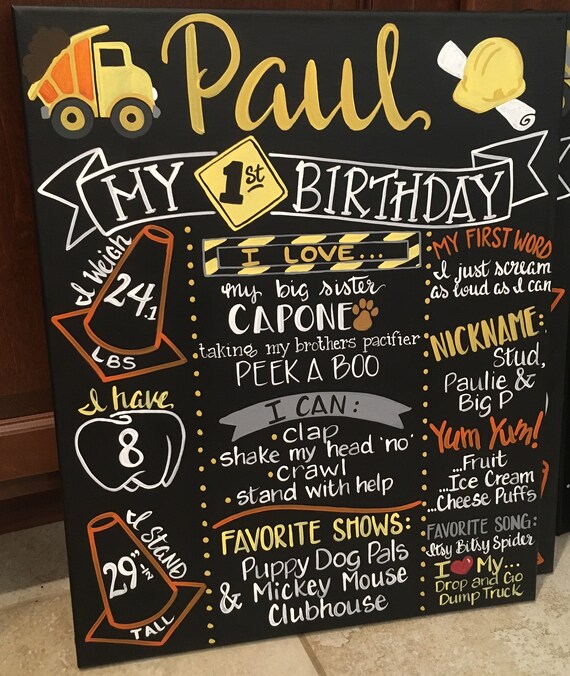 Paul
MY 1st BIRTHDAY
I Weigh
24.1
LBS
I have
8
I STAND
29" in
TALL
I LOVE...
my big sister
CAPONE
taking my brothers pacifier
PEEK A BOO
I CAN:
clap
shake my head 'no'
crawl
stand with help
FAVORITE SHOWS:
Puppy Dog Pals
& Mickey Mouse
Clubhouse
MY FIRST WORD
I just scream
as loud as I can
NICKNAME:
Stud,
Paulie &
Big P
Yum Yum!
...Fruit
...Ice Cream
...Cheese Puffs
FAVORITE SONG:
Itsy Bitsy Spider
I My...
Drop and Go
Dump Truck